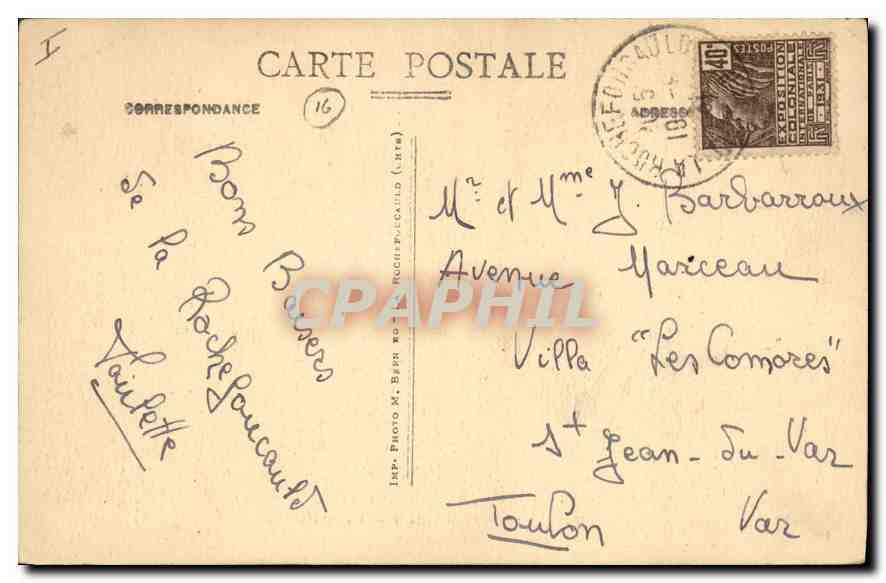 I
CARTE POSTALE
CORRESPONDANCE
16
ADRESSE
40c
POSTES
EXPOSITION
COLONIALE
INTERNATIONALE
DE PARIS
1931
Bons Baisers
de la Rochefoucauld
Paulette
IMP. PHOTO M. BERN
LA ROCHEFOUCAULD (CHTE)
CPAPHIL
Mr et Mme J. Barbarroux
Avenue Marceau
Villa "Les Comores"
St Jean-du-Var
Toulon Var